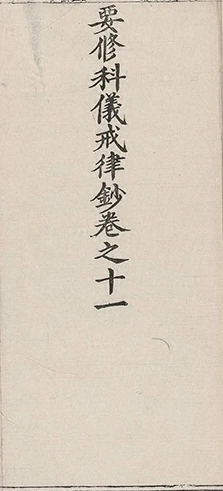 要修科儀戒律鈔卷之十一